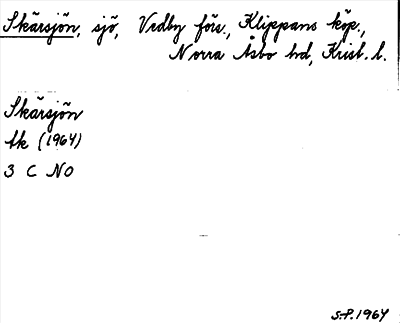 Skärsjön, sjö, Vedby förs., Klippans köp.,
Norra Åsbo hd, Krist. l.
Skärsjön
tk (1964)
3 C NO
S.P. 1964